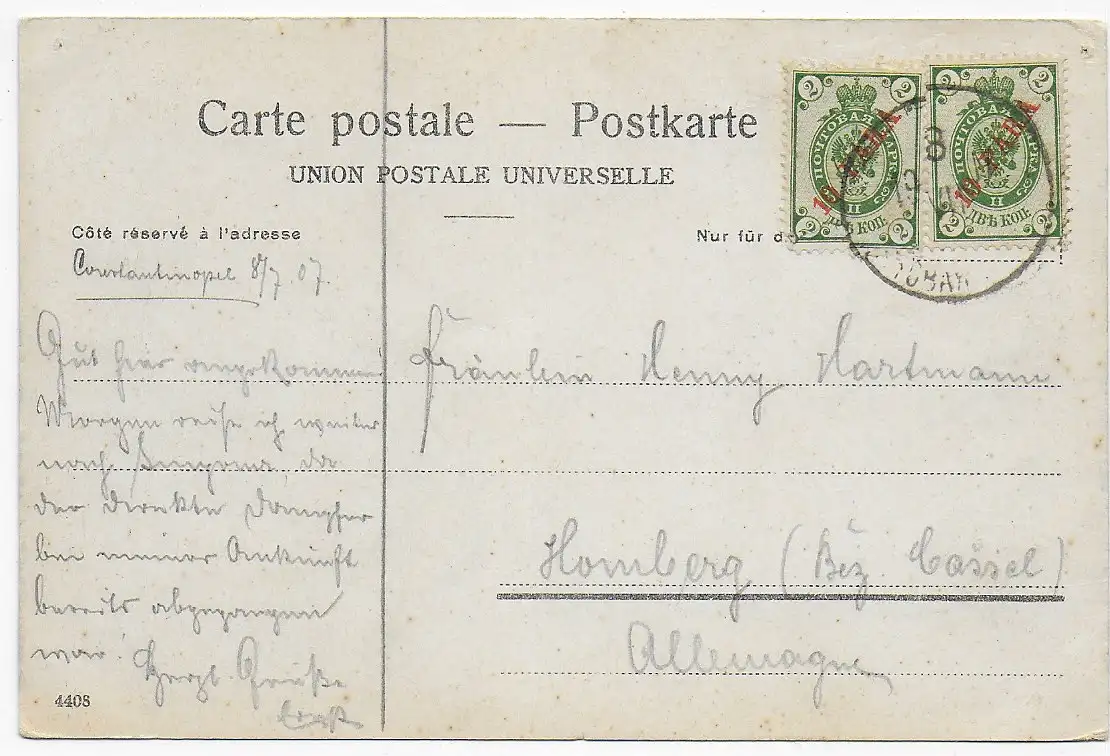 Carte postale — Postkarte
UNION POSTALE UNIVERSELLE
Côté réservé à l'adresse
Nur für d
Constantinopel 8/7. 07.
Gut hier angekommen
Morgen reise ich weiter
nach Smyrna da
der direkte Dampfer
bei meiner Ankunft
bereits abgegangen
war. Herzl. Grüße
Ernst
Fräulein Henny Hartmann
Homberg (Bez. Cassel)
Allemagne
4408
2 2
ПОЧТОВАЯ МАРКА
10 PARA
ДВѢ КОП.
2 2
2 2
ПОЧТОВАЯ МАРКА
10 PARA
ДВѢ КОП.
2 2
8